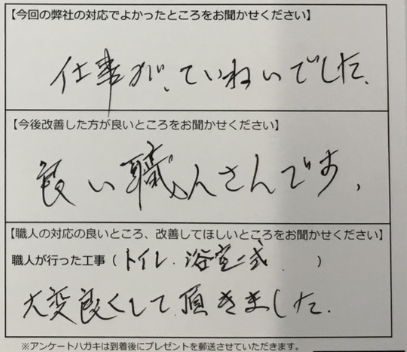 【今回の弊社の対応でよかったところをお聞かせください】
仕事が、ていねいでした.
【今後改善した方が良いところをお聞かせください】
良い職人さんです,
【職人の対応の良いところ、改善してほしいところをお聞かせください】
職人が行った工事（トイレ.浴室一式）
大変良くして頂きました.
※アンケートハガキは到着後にプレゼントを郵送させていただきます。